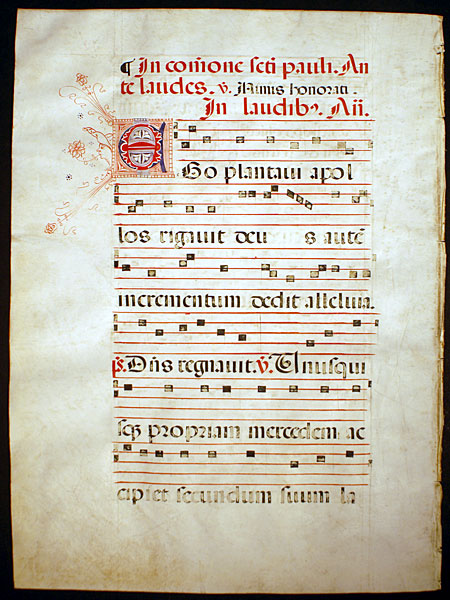 ¶ In com̃one scti pauli. An
te laudes. v. Nimis honorati.
In laudibꝫ. Añ.
EGo plantaui apol
los rigauit deu s autẽ
incrementum dedit alleluia.
ps̃. Dñs regnauit. v̓. Unusqui
sqꝫ propriam mercedem ac
cipiet secundum suum la